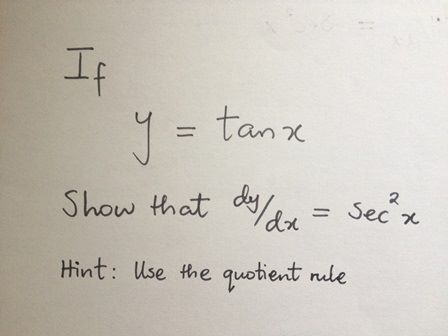 If
y = tan x
Show that dy/dx = sec² x
Hint: Use the quotient rule